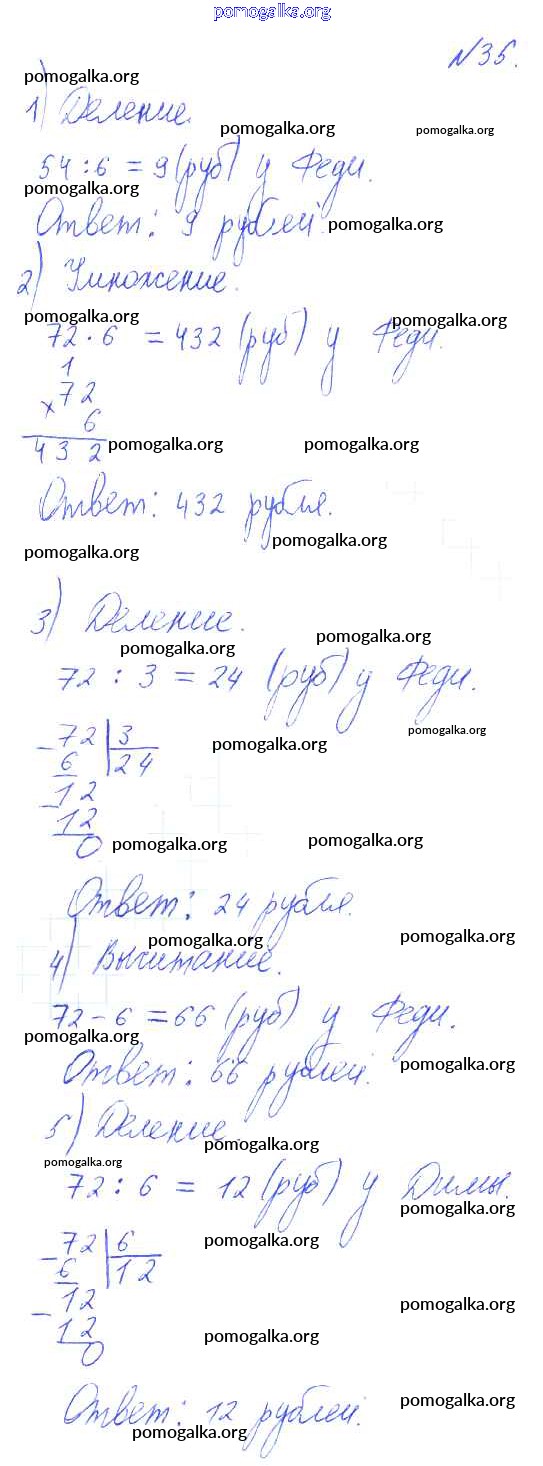 pomogalka.org
N35.
pomogalka.org
1) Деление.
pomogalka.org pomogalka.org
54 : 6 = 9 (руб) у Феди.
pomogalka.org
Ответ: 9 рублей. pomogalka.org
2) Умножение.
pomogalka.org pomogalka.org
72 · 6 = 432 (руб) у Феди.
1
× 72
6
432 pomogalka.org pomogalka.org
Ответ: 432 рубля.
pomogalka.org pomogalka.org
3) Деление.
pomogalka.org pomogalka.org
72 : 3 = 24 (руб) у Феди.
pomogalka.org
- 72 | 3
6 | 24 pomogalka.org
- 12
12
0 pomogalka.org pomogalka.org
Ответ: 24 рубля.
pomogalka.org pomogalka.org
4) Вычитание.
72 - 6 = 66 (руб) у Феди.
pomogalka.org
Ответ: 66 рублей. pomogalka.org
5) Деление.
pomogalka.org
pomogalka.org
72 : 6 = 12 (руб) у Димы.
pomogalka.org
- 72 | 6 pomogalka.org
6 | 12
- 12 pomogalka.org
12 pomogalka.org
0
Ответ: 12 рублей. pomogalka.org
pomogalka.org